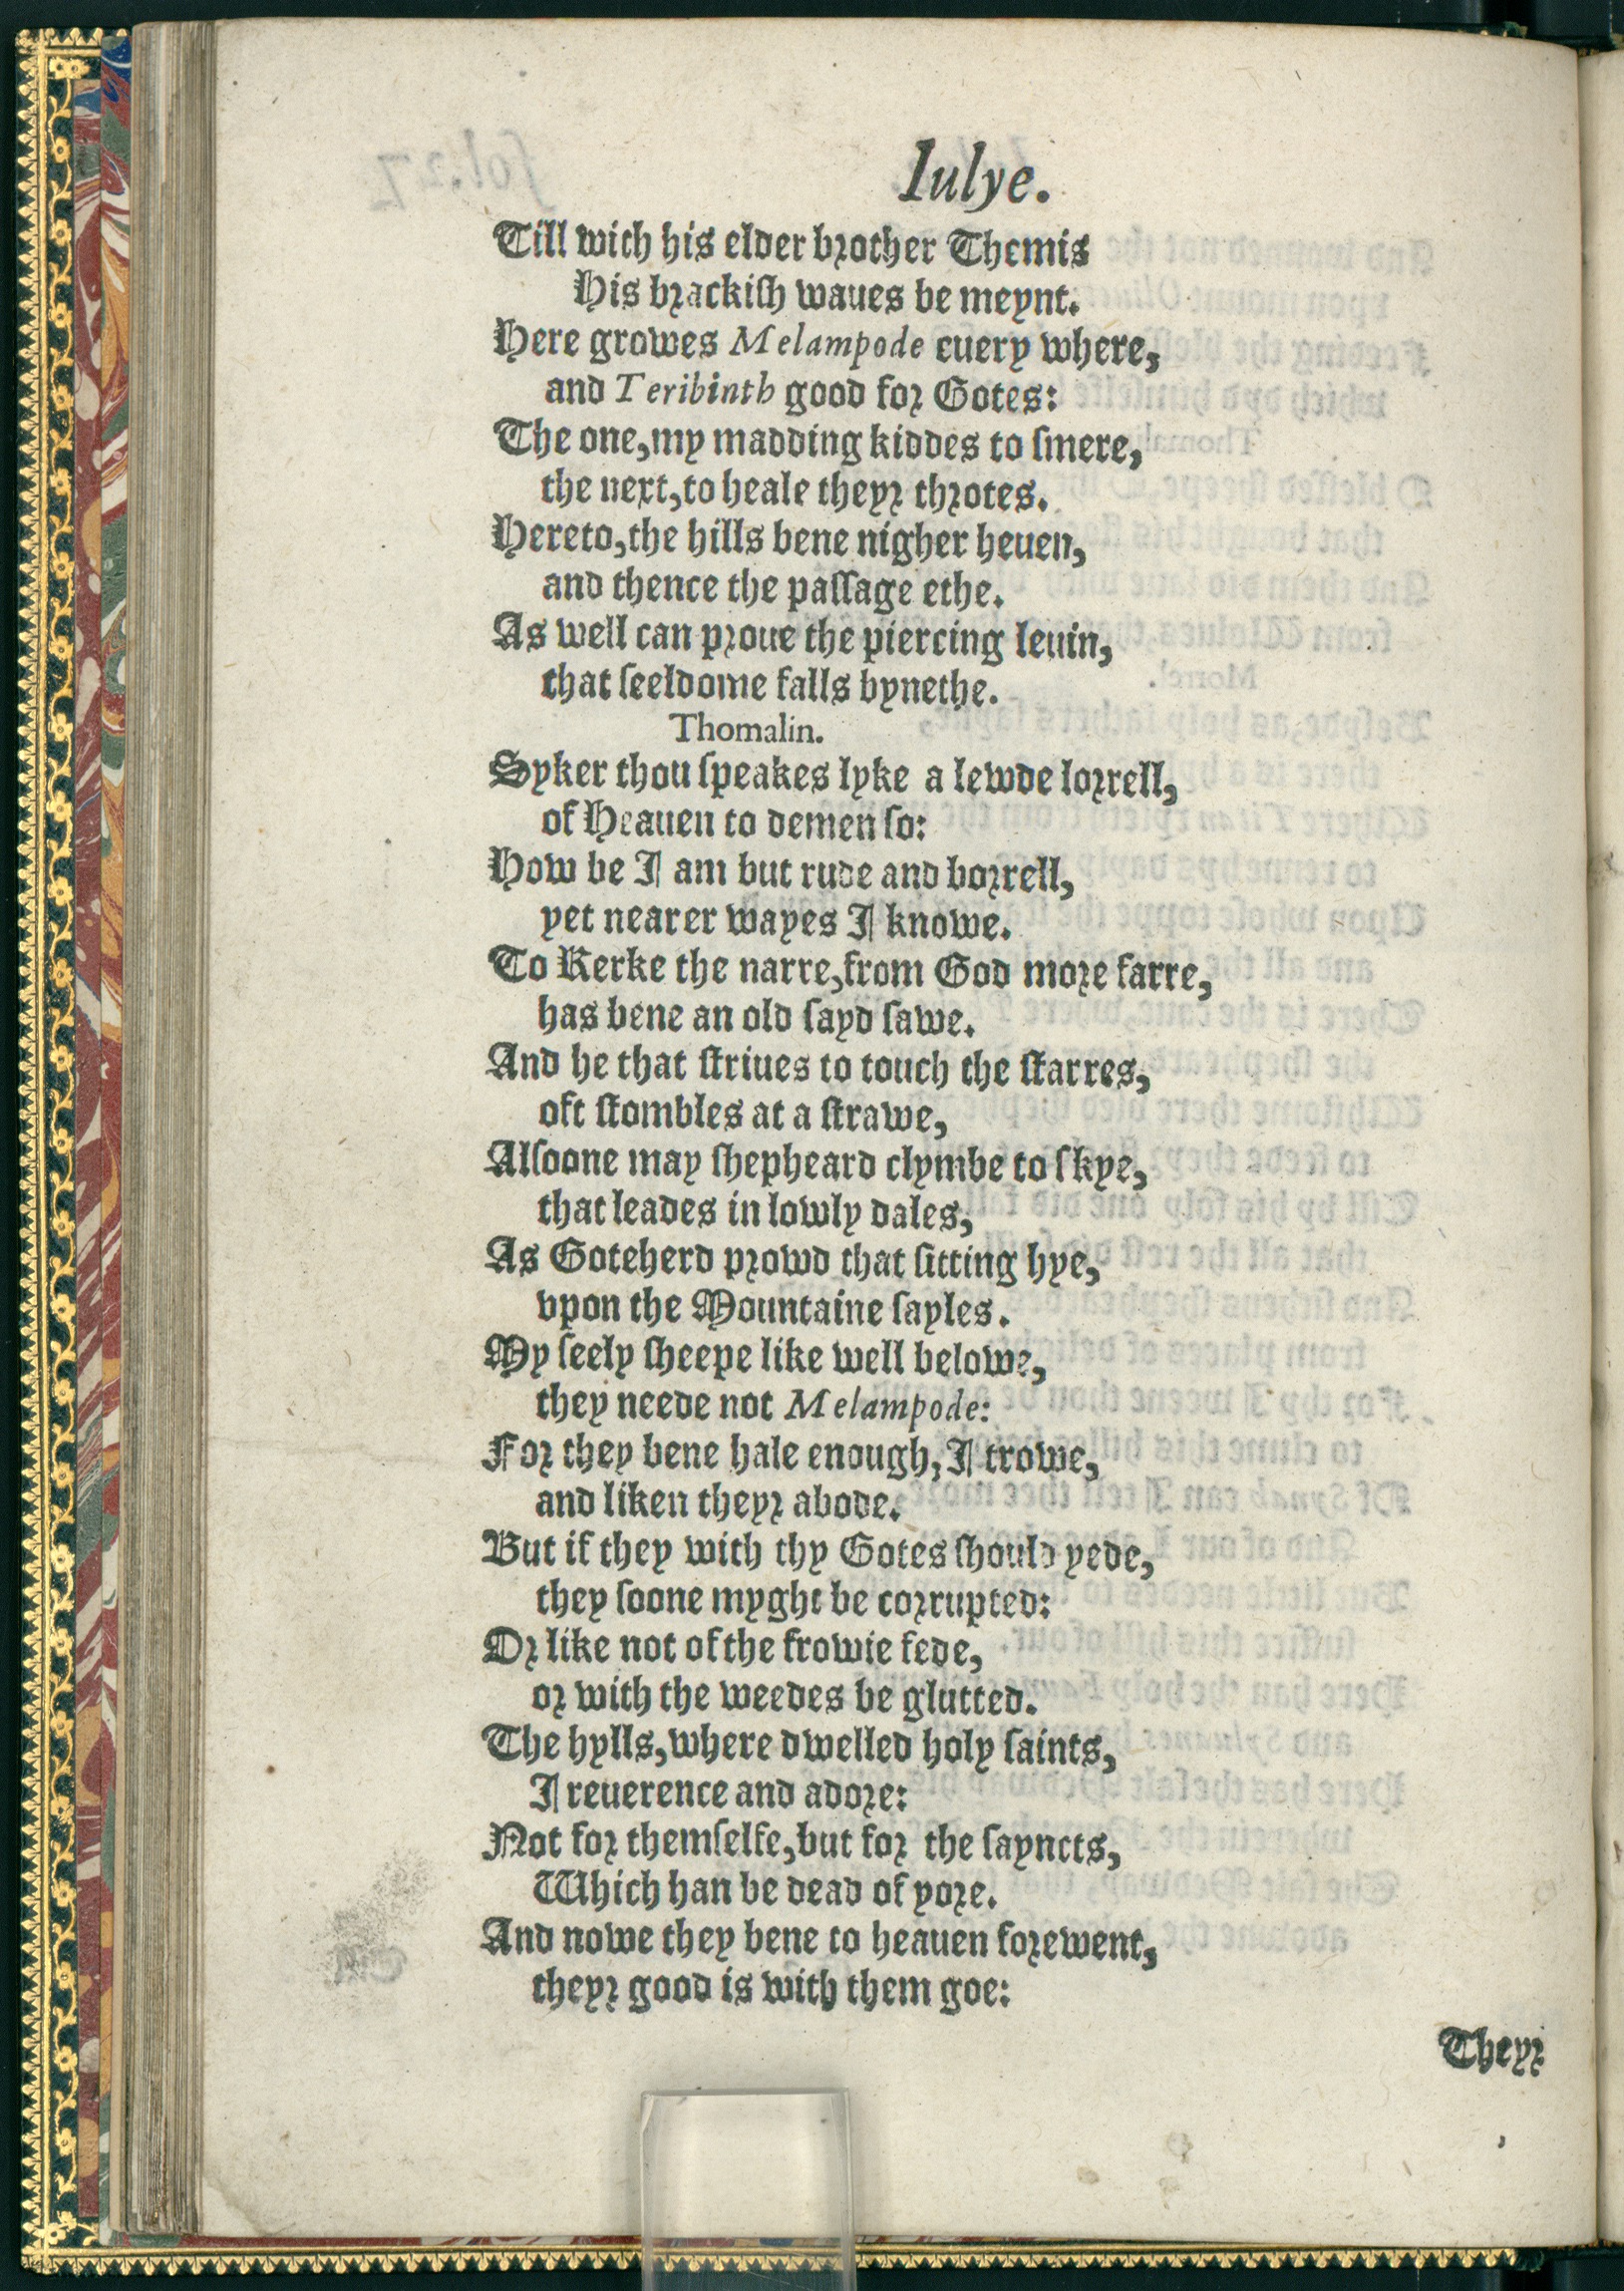 Iulye.
Till with his elder brother Themis
His brackiſh waues be meynt.
Here growes Melampode euery where,
and Teribinth good for Gotes:
The one,my madding kiddes to ſmere,
the next,to heale theyr throtes.
Hereto,the hills bene nigher heuen,
and thence the paſſage ethe.
As well can proue the piercing leuin,
that ſeeldome falls bynethe.
Thomalin.
Syker thou ſpeakes lyke a lewde lorrell,
of Heauen to demen ſo:
How be I am but rude and borrell,
yet nearer wayes I knowe.
To Kerke the narre,from God more farre,
has bene an old ſayd ſawe.
And he that ſtriues to touch the ſtarres,
oft ſtombles at a ſtrawe,
Alſoone may ſhepheard clymbe to ſkye,
that leades in lowly dales,
As Goteherd prowd that ſitting hye,
vpon the Mountaine ſayles.
My ſeely ſheepe like well belowe,
they neede not Melampode:
For they bene hale enough,I trowe,
and liken theyr abode.
But if they with thy Gotes ſhould yede,
they ſoone myght be corrupted:
Or like not of the frowie fede,
or with the weedes be glutted.
The hylls,where dwelled holy ſaints,
I reuerence and adore:
Not for themſelfe,but for the ſayncts,
Which han be dead of yore.
And nowe they bene to heauen forewent,
theyr good is with them goe:
Theyr